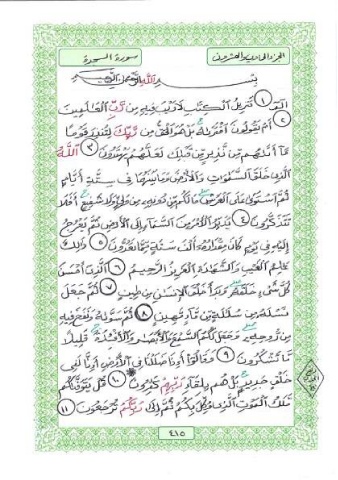 الجزء الحادي والعشرون
سورة السجدة
بِسْمِ اللَّهِ الرَّحْمَٰنِ الرَّحِيمِ
الٓمٓ ١ تَنزِيلُ الْكِتَٰبِ لَا رَيْبَ فِيهِ مِن رَّبِّ الْعَٰلَمِينَ
٢ أَمْ يَقُولُونَ افْتَرَىٰهُ بَلْ هُوَ الْحَقُّ مِن رَّبِّكَ لِتُنذِرَ قَوْمًا
مَّآ أَتَىٰهُم مِّن نَّذِيرٍ مِّن قَبْلِكَ لَعَلَّهُمْ يَهْتَدُونَ ٣ اللَّهُ
الَّذِى خَلَقَ السَّمَٰوَٰتِ وَالْأَرْضَ وَمَا بَيْنَهُمَا فِى سِتَّةِ أَيَّامٍ
ثُمَّ اسْتَوَىٰ عَلَى الْعَرْشِ مَا لَكُم مِّن دُونِهِۦ مِن وَلِىٍّ وَلَا شَفِيعٍ أَفَلَا
تَتَذَكَّرُونَ ٤ يُدَبِّرُ الْأَمْرَ مِنَ السَّمَآءِ إِلَى الْأَرْضِ ثُمَّ يَعْرُجُ
إِلَيْهِ فِى يَوْمٍ كَانَ مِقْدَارُهُۥٓ أَلْفَ سَنَةٍ مِّمَّا تَعُدُّونَ ٥ ذَٰلِكَ
عَٰلِمُ الْغَيْبِ وَالشَّهَٰدَةِ الْعَزِيزُ الرَّحِيمُ ٦ الَّذِىٓ أَحْسَنَ
كُلَّ شَىْءٍ خَلَقَهُۥ وَبَدَأَ خَلْقَ الْإِنسَٰنِ مِن طِينٍ ٧ ثُمَّ جَعَلَ
نَسْلَهُۥ مِن سُلَٰلَةٍ مِّن مَّآءٍ مَّهِينٍ ٨ ثُمَّ سَوَّىٰهُ وَنَفَخَ فِيهِ
مِن رُّوحِهِۦ وَجَعَلَ لَكُمُ السَّمْعَ وَالْأَبْصَٰرَ وَالْأَفْـِٔدَةَ قَلِيلًا
مَّا تَشْكُرُونَ ٩ وَقَالُوٓا أَءِذَا ضَلَلْنَا فِى الْأَرْضِ أَءِنَّا لَفِى
خَلْقٍ جَدِيدٍ بَلْ هُم بِلِقَآءِ رَبِّهِمْ كَٰفِرُونَ ١٠ قُلْ يَتَوَفَّىٰكُم
مَّلَكُ الْمَوْتِ الَّذِى وُكِّلَ بِكُمْ ثُمَّ إِلَىٰ رَبِّكُمْ تُرْجَعُونَ ١١
٤١٥